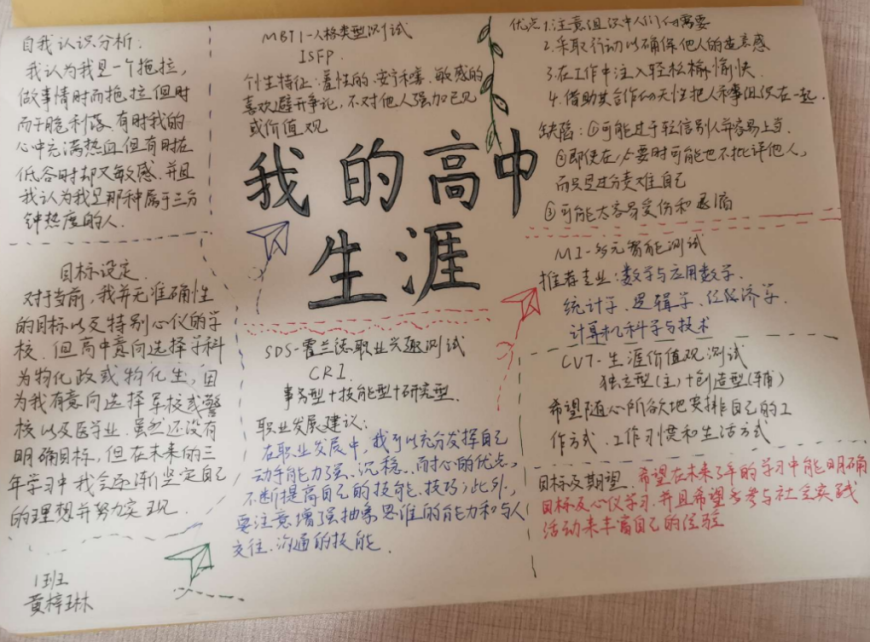 自我认识分析.
我认为我是一个拖拉,
做事情时而拖拉但时
而干脆利落.有时我的
心中充满热血但有时在
低谷时却又敏感.并且
我认为我是那种属于三分
钟热度的人.
目标设定.
对于当前,我并无准确性
的目标以及特别心仪的学
校.但高中意向选择学科
为物化政或物化生,因
为我有意向选择军校或警
校以及医学业.虽然还没有
明确目标,但在未来的三
年学习中我会逐渐坚定自己
的理想并努力实现.
1班
黄梓琳
MBTI-人格类型测试
ISFP
个性特征:羞怯的.安宁和善.敏感的
喜欢避开争论,不对他人强加己见
或价值观
我的高中
生涯
SDS-霍兰德职业兴趣测试
CRI.
事务型+技能型+研究型.
职业发展建议:
在职业发展中,我可以充分发挥自己
动手能力强、沉稳、耐心的优点,
不断提高自己的技能、技巧;此外,
要注意增强抽象思维的能力和与人
交往、沟通的技能.
优点1.注意组织中人们的需要
2.采取行动以确保他人的
3.在工作中注入轻松 愉快.
4.借助其合作的天性把人和事组织在一起.
缺陷:①可能过于轻信别人并容易上当.
②即使在必要时可能也不批评他人,
而只是过分责难自己
③可能太容易受伤和退缩
MI-多元智能测试
推荐专业:数学与应用数学.
统计学、逻辑学、 经济学.
计算机科学与技术
CVT-生涯价值观测试
独立型(主)+创造型(辅)
希望随心所欲地安排自己的工
作方式.工作习惯和生活方式
目标及期望.希望在未来3年的学习中能明确
目标及心仪学习.并且希望多参与社会实践
活动来丰富自己的经验